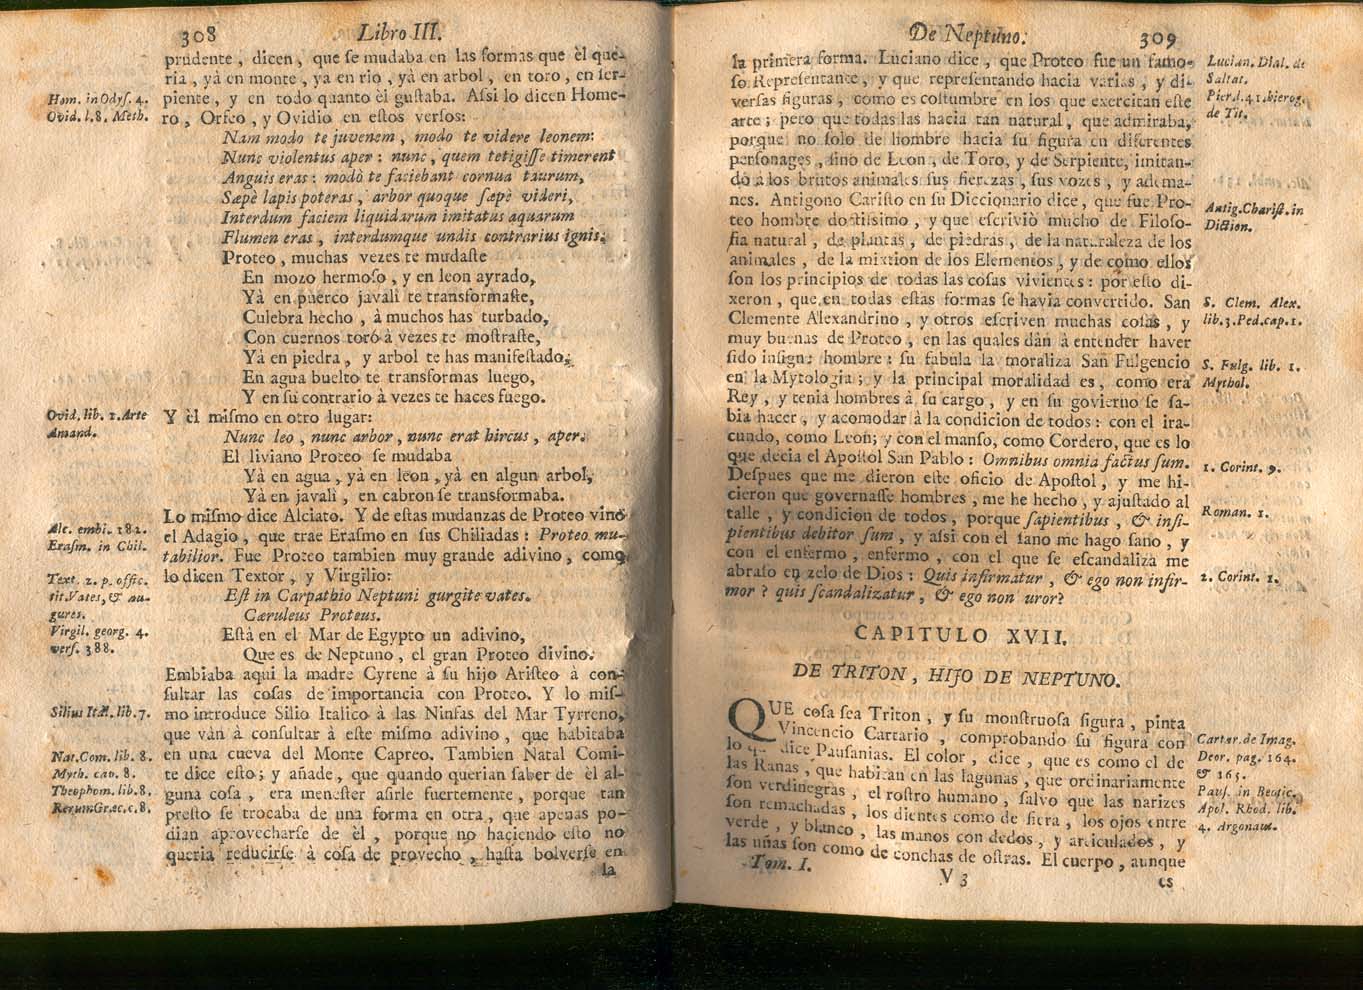 308 Libro III.
prudente, dicen, que ſe mudaba en las formas que èl que-
ria, yà en monte, ya en rio, yà en arbol, en toro, en ſer-
piente, y en todo quanto èl guſtaba. Aſsi lo dicen Home-
ro, Orfeo, y Ovidio en eſtos verſos:
Hom. in Odyſ. 4.
Ovid. l. 8. Meth.
Nam modo te juvenem, modo te videre leonem:
Nunc violentus aper: nunc, quem tetigiſſe timerent
Anguis eras: modò te faciebant cornua taurum,
Sæpè lapis poteras, arbor quoque ſæpè videri,
Interdum faciem liquidarum imitatus aquarum
Flumen eras, interdumque undis contrarius ignis.
Proteo, muchas vezes te mudaſte
En mozo hermoſo, y en leon ayrado,
Yà en puerco javalì te transformaſte,
Culebra hecho, à muchos has turbado,
Con cuernos toró à vezes te moſtraſte,
Yà en piedra, y arbol te has manifeſtado,
En agua buelto te transformas luego,
Y en ſu contrario à vezes te haces fuego.
Y èl miſmo en otro lugar:
Ovid. lib. 2. Arte
Amand.
Nunc leo, nunc arbor, nunc erat hircus, aper.
El liviano Proteo ſe mudaba
Yà en agua, yà en leon, yà en algun arbol,
Yà en javalì, en cabron ſe transformaba.
Lo miſmo dice Alciato. Y de eſtas mudanzas de Proteo vino
el Adagio, que trae Eraſmo en ſus Chiliadas: Proteo mu-
tabilior. Fue Proteo tambien muy grande adivino, como
lo dicen Textor, y Virgilio:
Alc. embl. 182.
Eraſm. in Chil.
Text. 2. p. offic.
tit. Vates, & au-
gures.
Virgil. georg. 4.
verſ. 388.
Eſt in Carpathio Neptuni gurgite vates.
Cæruleus Proteus.
Eſtà en el Mar de Egypto un adivino,
Que es de Neptuno, el gran Proteo divino.
Embiaba aqui la madre Cyrene à ſu hijo Ariſteo à con-
ſultar las coſas de importancia con Proteo. Y lo miſ-
mo introduce Silio Italico à las Ninfas del Mar Tyrreno,
que vàn à conſultar à eſte miſmo adivino, que habitaba
en una cueva del Monte Capreo. Tambien Natal Comi-
te dice eſto; y añade, que quando querian ſaber de èl al-
guna coſa, era meneſter aſirle fuertemente, porque tan
preſto ſe trocaba de una forma en otra, que apenas po-
dian aprovecharſe de èl, porque no haciendo eſto no
queria reducirſe à coſa de provecho, haſta bolverſe en
la
Silius Ital. lib. 7.
Nat. Com. lib. 8.
Myth. cap. 8.
Theophom. lib. 8.
Rerum Græc. c. 8.
De Neptuno. 309
la primera forma. Luciano dice, que Proteo fue un famo-
ſo Repreſentante, y que repreſentando hacia varias, y di-
verſas figuras, como es coſtumbre en los que exercitan eſte
arte; pero que todas las hacia tan natural, que admiraba,
porque no ſolo de hombre hacia ſu figura en diferentes
perſonages, ſino de Leon, de Toro, y de Serpiente, imitan-
do à los brutos animales ſus fierezas, ſus vozes, y adema-
nes. Antigono Cariſto en ſu Diccionario dice, que fue Pro-
teo hombre doctiſsimo, y que eſcriviò mucho de Filoſo-
fia natural, de plantas, de piedras, de la naturaleza de los
animales, de la mixtion de los Elementos, y de como ellos
ſon los principios de todas las coſas vivientes: por eſto di-
xeron, que en todas eſtas formas ſe havia convertido. San
Clemente Alexandrino, y otros eſcriven muchas coſas, y
muy buenas de Proteo, en las quales dàn à entender haver
ſido inſigne hombre: ſu fabula la moraliza San Fulgencio
en la Mytologia; y la principal moralidad es, como era
Rey, y tenia hombres à ſu cargo, y en ſu govierno ſe ſa-
bia hacer, y acomodar à la condicion de todos: con el ira-
cundo, como Leon; y con el manſo, como Cordero, que es lo
que decia el Apoſtol San Pablo: Omnibus omnia factus ſum.
Deſpues que me dieron eſte oficio de Apoſtol, y me hi-
cieron que governaſſe hombres, me he hecho, y ajuſtado al
talle, y condicion de todos, porque ſapientibus, & inſi-
pientibus debitor ſum, y aſsi con el ſano me hago ſano, y
con el enfermo, enfermo, con el que ſe eſcandaliza me
abraſo en zelo de Dios: Quis infirmatur, & ego non infir-
mor? quis ſcandalizatur, & ego non uror?
Lucian. Dial. de
Saltat.
Pier. l. 41. hierog.
de Tit.
Antig. Chariſt. in
Diction.
S. Clem. Alex.
lib. 3. Ped. cap. 1.
S. Fulg. lib. 1.
Mythol.
1. Corint. 9.
Roman. 1.
2. Corint. 1.
CAPITULO XVII.
DE TRITON, HIJO DE NEPTUNO.
QUE coſa ſea Triton, y ſu monſtruoſa figura, pinta
Vincencio Cartario, comprobando ſu figura con
lo q. dice Pauſanias. El color, dice, que es como el de
las Ranas, que habitan en las lagunas, que ordinariamente
ſon verdinegras, el roſtro humano, ſalvo que las narizes
ſon remachadas, los dientes como de fiera, los ojos entre
verde, y blanco, las manos con dedos, y articulados, y
las uñas ſon como de conchas de oſtras. El cuerpo, aunque
Tom. I. V 3 es
Cartar. de Imag.
Deor. pag. 164.
& 165.
Pauſ. in Beotic.
Apol. Rhod. lib.
4. Argonaut.